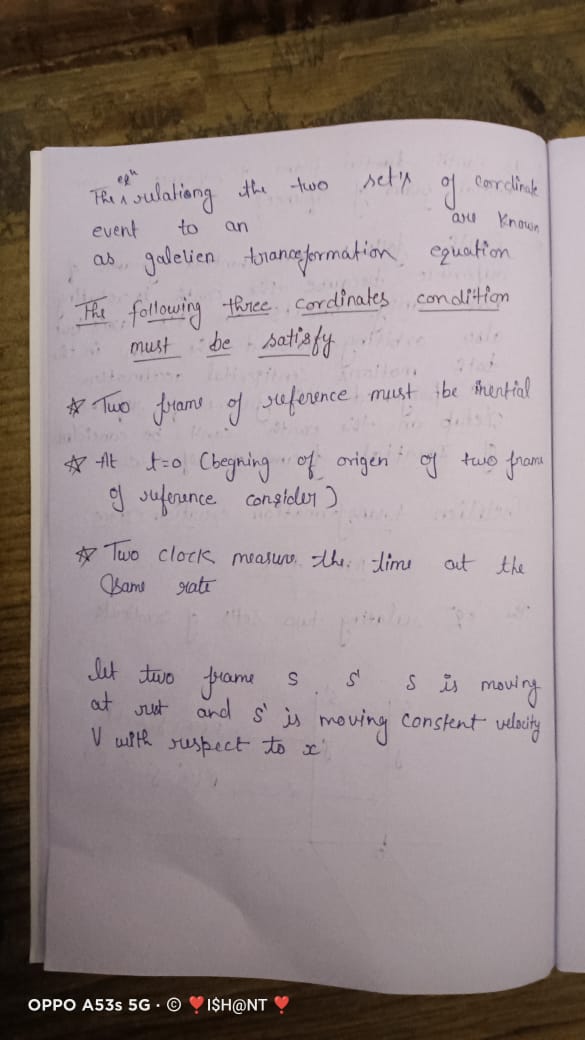 The eqn rulationg the two set's of corrdinate
event to an are known
as galelien tranceformation equation
The following three cordinates condition
must be satisfy
☆ Two frame of reference must be inertial
☆ At t=0 (begning of origen of two frame
of reference consider)
☆ Two clock measure the time at the
same rate
let two frame S S' S is moving
at rest and S' is moving constent velocity
V with respect to x'
OPPO A53s 5G · © ❤️ I$H@NT ❤️